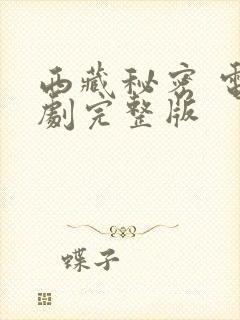 西藏秘密 電
劇完整版
蝶子